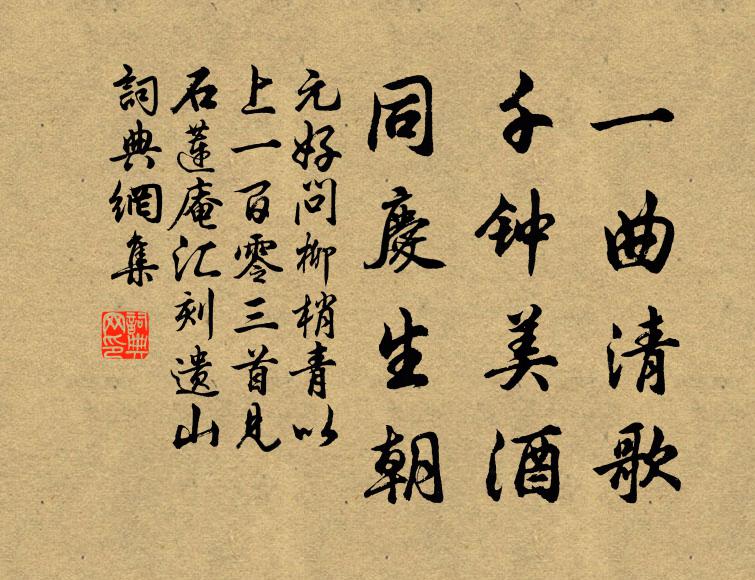 一曲清歌
千钟美酒
同慶生朝
元好问柳梢青以
上一百零三首見
石蓮庵汇刻遗山
詞典網集
詞典网印